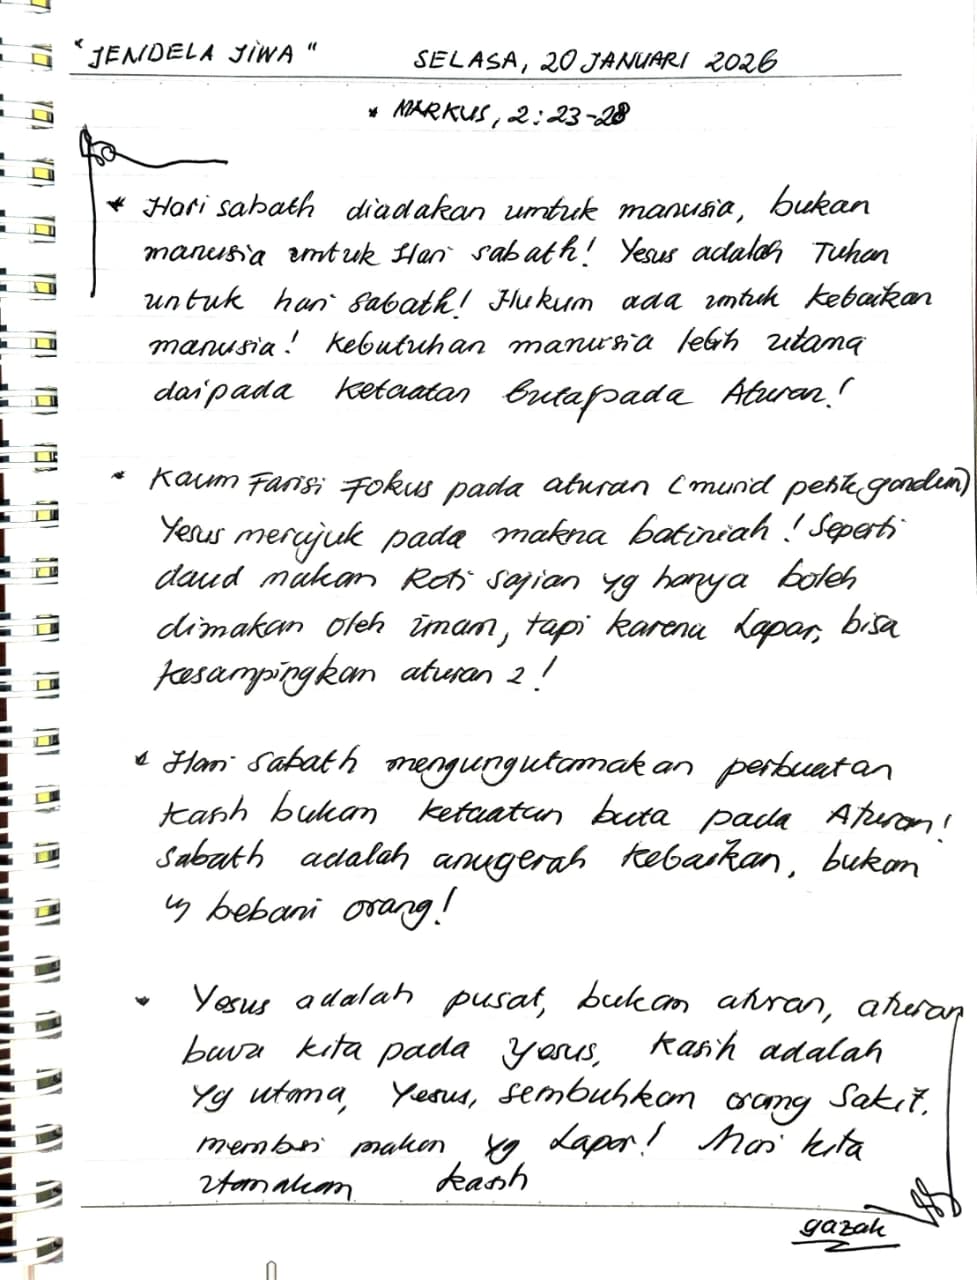 "JENDELA JIWA" SELASA, 20 JANUARI 2026
* MARKUS, 2:23-28
* Hari sabath diadakan umtuk manusia, bukan
manusia umtuk Hari sabath! Yesus adalah Tuhan
untuk hari sabath! Hukum ada umtuk kebaikan
manusia! kebutuhan manusia lebih utama
daripada ketaatan buta pada Aturan!
* Kaum Farisi Fokus pada aturan (murid petik gandum)
Yesus merujuk pada makna batiniah! Seperti
daud makan Roti sajian yg hanya boleh
dimakan oleh imam, tapi karena Lapar, bisa
kesampingkan aturan 2!
* Hari sabath mengungutamakan perbuatan
kasih bukan ketaatan buta pada Aturan!
sabath adalah anugerah kebaikan, bukan
bebani orang!
* Yesus adalah pusat, bukan aturan, aturan
bawa kita pada Yesus, kasih adalah
yg utama, Yesus, sembuhkan orang sakit,
memberi makan yg Lapar! Mari kita
utamakan kasih
gazak